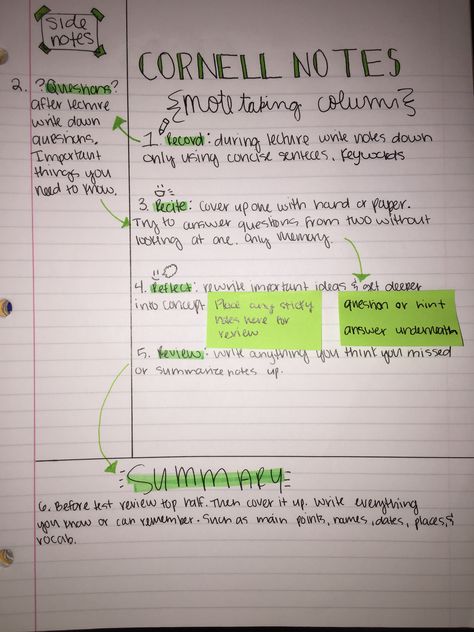 Side
notes
CORNELL NOTES
{Note taking column}
2. ?Questions?
after lecture
write down
questions.
Important
things you
need to know.
1. Record: during lecture write notes down
only using concise senteces. Keywords
3. Recite: Cover up one with hand or paper.
Try to answer questions from two without
looking at one. Only memory.
4. Reflect: rewrite important ideas & get deeper
into concept
Place any sticky
notes here for
review
question or hint
answer underneath
5. Review: write anything you think you missed
or summarize notes up.
SUMMARY
6. Before test review top half. Then cover it up. Write everything
you know or can remember. Such as main points, names, dates, places, &
vocab.